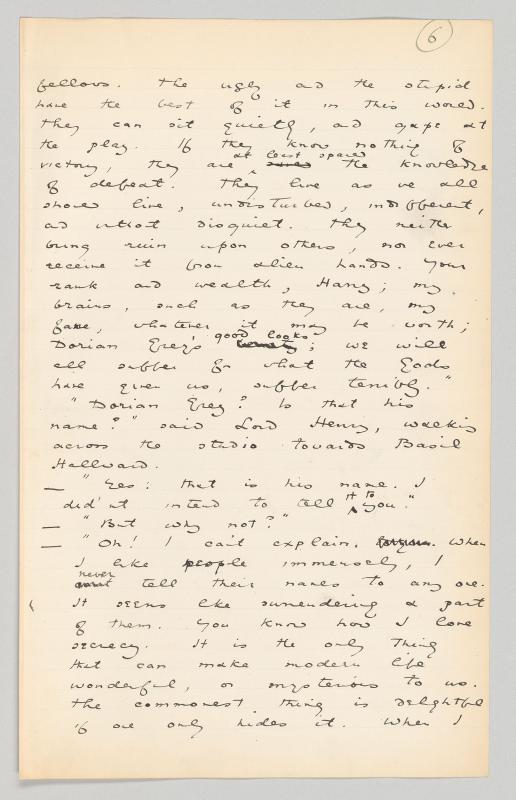 6
fellows. The ugly and the stupid
have the best of it in this world.
They can sit quietly, and gape at
the play. If they know nothing of
victory, they are at least spared the knowledge
of defeat. They live as we all
should live, undisturbed, indifferent,
and without disquiet. They neither
bring ruin upon others, nor ever
receive it from alien hands. Your
rank and wealth, Harry; my
brains, such as they are, my
fame, whatever it may be worth;
Dorian Gray's good looks; we will
all suffer for what the Gods
have given us, suffer terribly."
"Dorian Gray? Is that his
name?" said Lord Henry, walking
across the studio towards Basil
Hallward.
— "Yes: that is his name. I
did'nt intend to tell it to you."
— "But why not?"
— "Oh! I can't explain. When
I like people immensely, I
never tell their names to any one.
It seems like surrendering a part
of them. You know how I love
secrecy. It is the only thing
that can make modern life
wonderful, or mysterious to us.
The commonest thing is delightful
if one only hides it. When I